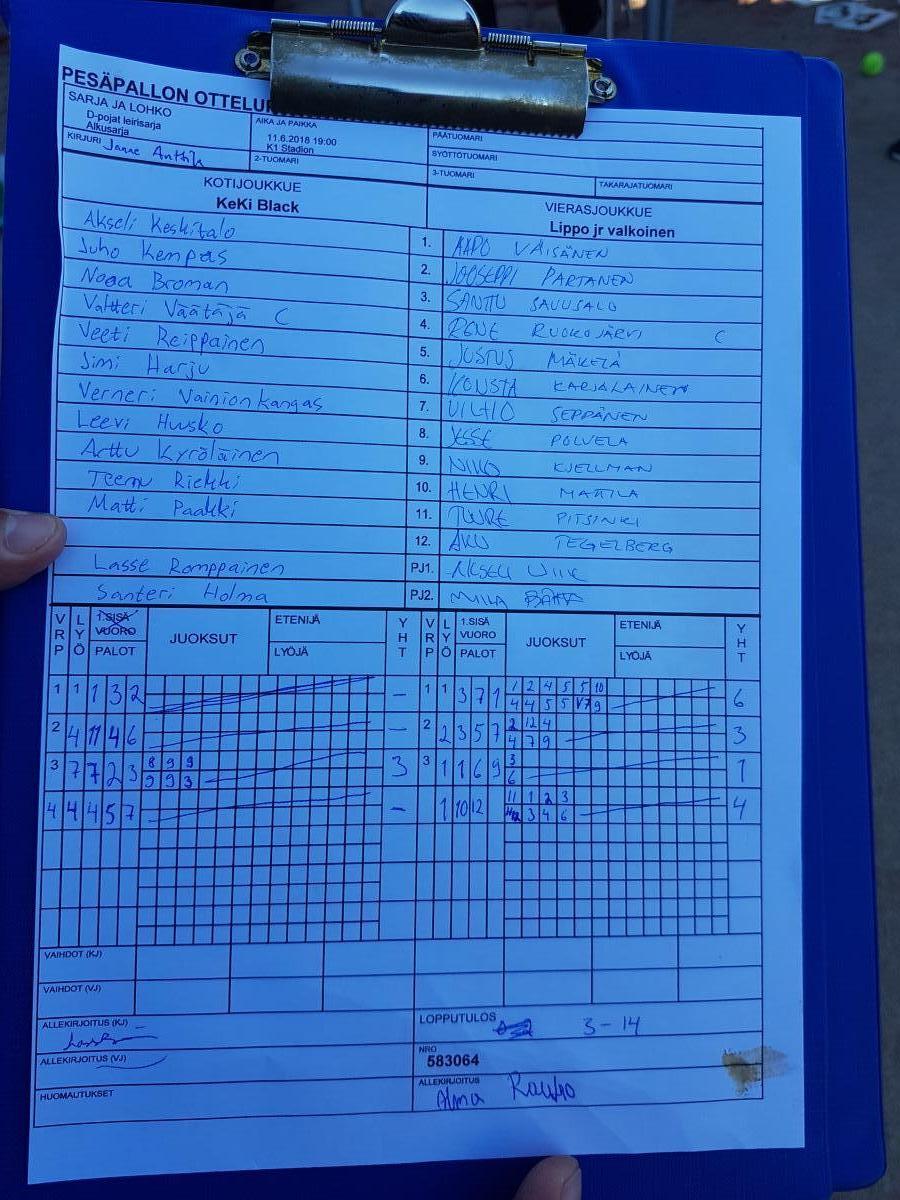 PESÄPALLON
SARJA JA LOHKO
D-pojat leirisarja
Alkusarja
KIRJURI Janne Anttila
AIKA JA PAIKKA
11.6.2018 19:00
K1 Stadion
2-TUOMARI
PÄÄTUOMARI
SYÖTTÖTUOMARI
3-TUOMARI TAKARAJATUOMARI
KOTIJOUKKUE
KeKi Black
VIERASJOUKKUE
Lippo jr valkoinen
Akseli Keskitalo 1. AAPO VÄISÄNEN
Juho Kempas 2. JOOSEPPI PARTANEN
Nooa Broman 3. SANTTU SAUUSALO
Valtteri Väätäjä C 4. RONE RUOKOJÄRVI C
Veeti Reippainen 5. JUSTUS MÄKELÄ
Jimi Harju 6. KONSTA KARJALAINEN
Verneri Vainionkangas 7. VILHO SEPPÄNEN
Leevi Huusko 8. JESSE POLVELA
Arttu Kyröläinen 9. NIKO KJELLMAN
Teemu Riekki 10. HENRI MATTILA
Matti Paakki 11. TUURE PITSINKI
12. AKU TEGELBERG
Lasse Romppainen PJ1. AKSELI
Santeri Holma PJ2. MIILA
VRP LYÖ 1.SISÄ VUORO PALOT JUOKSUT ETENIJÄ LYÖJÄ YHT VRP LYÖ 1.SISÄ VUORO PALOT JUOKSUT ETENIJÄ LYÖJÄ YHT
1 1 1 3 2 – 1 1 3 7 1 1 2 4 5 5 10 6
4 4 5 5 9
2 4 11 4 6 – 2 2 3 5 7 2 12 4 3
4 7 9
3 7 7 2 3 8 9 9 3 3 1 1 6 9 3 1
9 9 3 6
4 4 4 5 7 – 1 10 12 11 1 2 3 4
3 4 6
VAIHDOT (KJ)
VAIHDOT (VJ)
ALLEKIRJOITUS (KJ)
ALLEKIRJOITUS (VJ)
HUOMAUTUKSET
LOPPUTULOS 3-14
NRO
583064
ALLEKIRJOITUS
Alma Rauhio